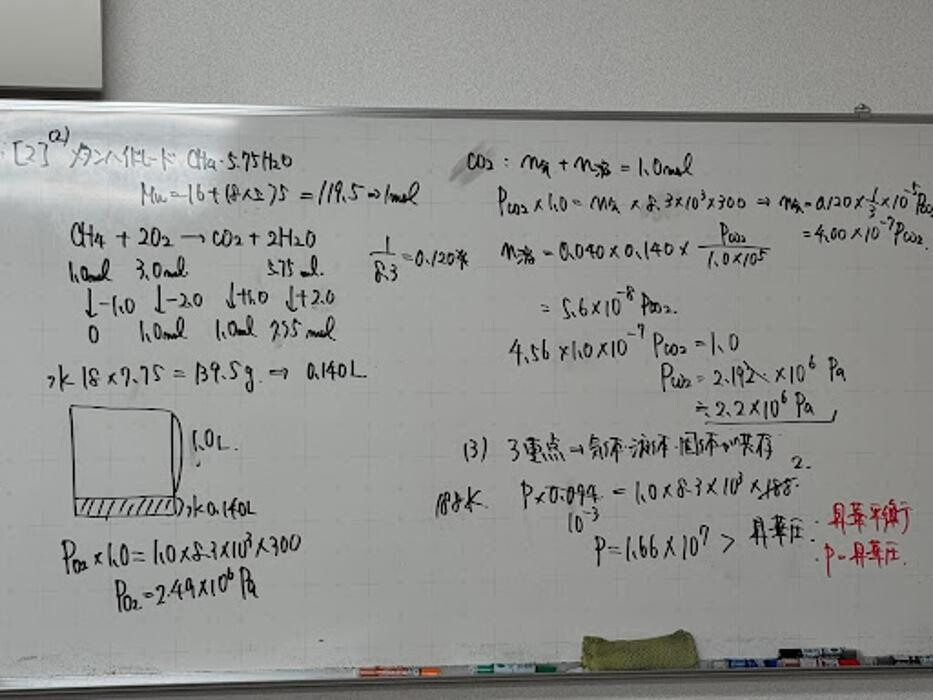 [2](2) メタンハイドレード CH4・5.75H2O
Mw=16+18×5.75=119.5 /mol
CH4 + 2O2 → CO2 + 2H2O
1.0mol 3.0mol 5.75 mol
↓-1.0 ↓-2.0 ↓+1.0 ↓+2.0
0 1.0mol 1.0mol 7.75 mol
1/8.3=0.120
水 18×7.75=139.5g → 0.140L
1.0L
水0.140L
PO2×1.0=1.0×8.3×10³×300
PO2=2.49×10⁶Pa
CO2: n気+n溶=1.0mol
PCO2×1.0=n気×8.3×10³×300 ⇒ n気=0.120×1/3×10⁻⁵PCO2
=4.00×10⁻⁷PCO2.
n溶=0.040×0.140×PCO2/1.0×10⁵
=5.6×10⁻⁸PCO2.
4.56×1.0×10⁻⁷PCO2=1.0
PCO2=2.192×10⁶Pa
≒2.2×10⁶Pa
(3) 3重点→気体・液体・固体が共存
188K P×0.094/10⁻³=1.0×8.3×10³×188
2.
P=1.66×10⁷> 昇華圧:昇華平衡
P=昇華圧